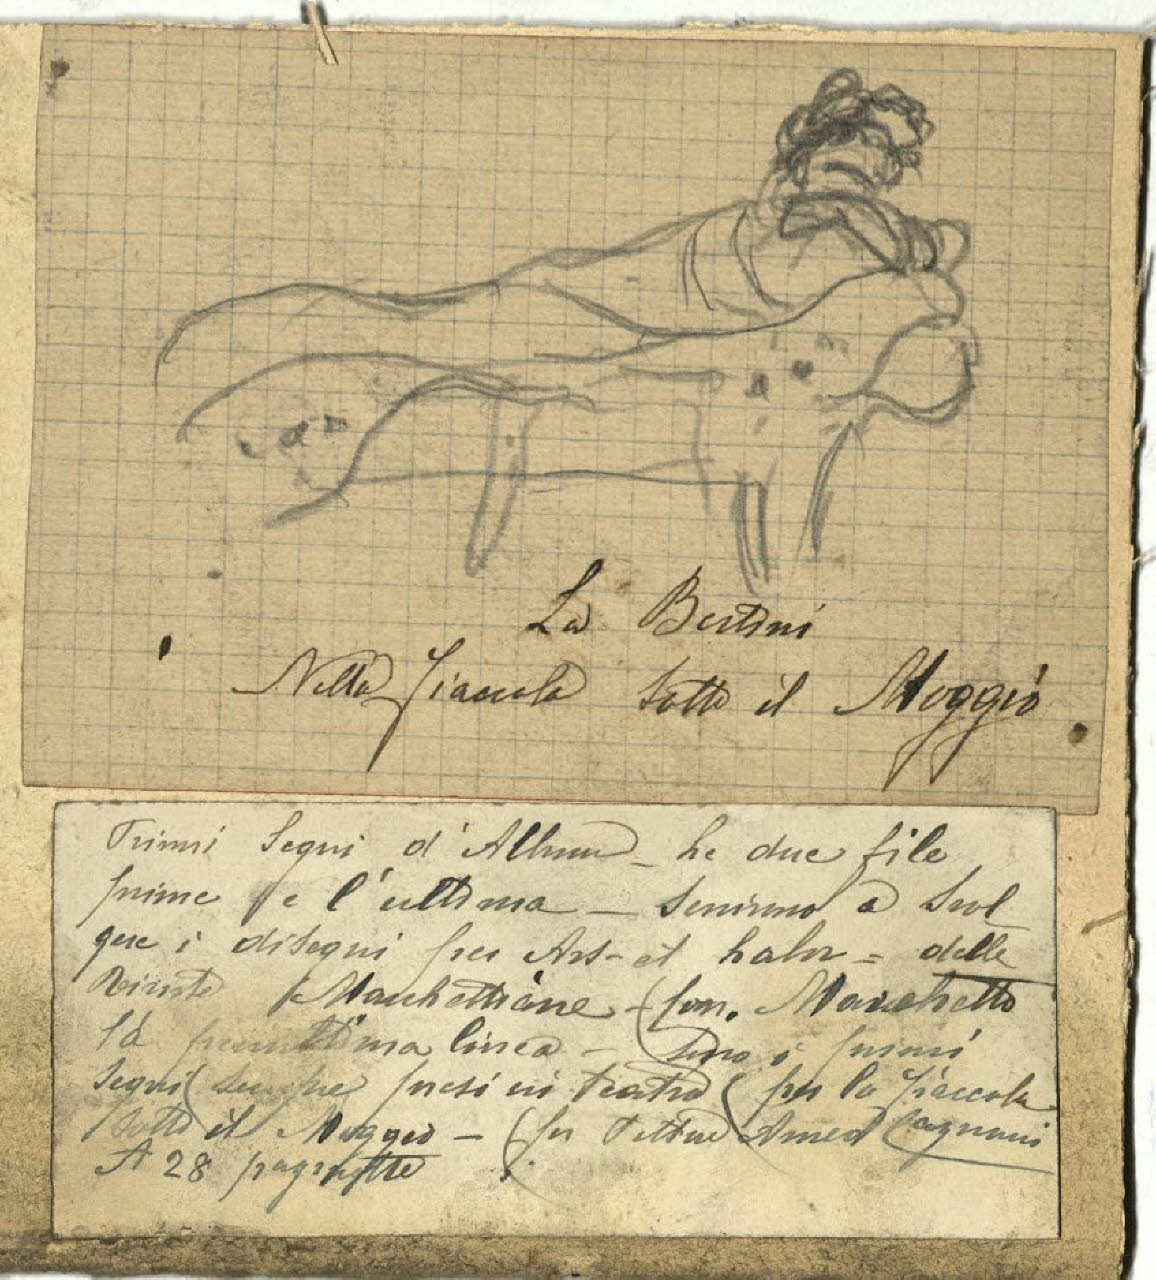 La Bertini
Nella Fiaccola sotto il Moggio
Primi Segni d'Album _ Le due file
prime e l'ultima _ Servirono a Svol_
gere i disegni per Ars-et labor = delle
Riviste Marchettiane _ Marchetto
la penultima linea _ Sono i primi
Segni (sempre presi in teatro (per la Fiaccola
Sotto il Moggio _
A 28